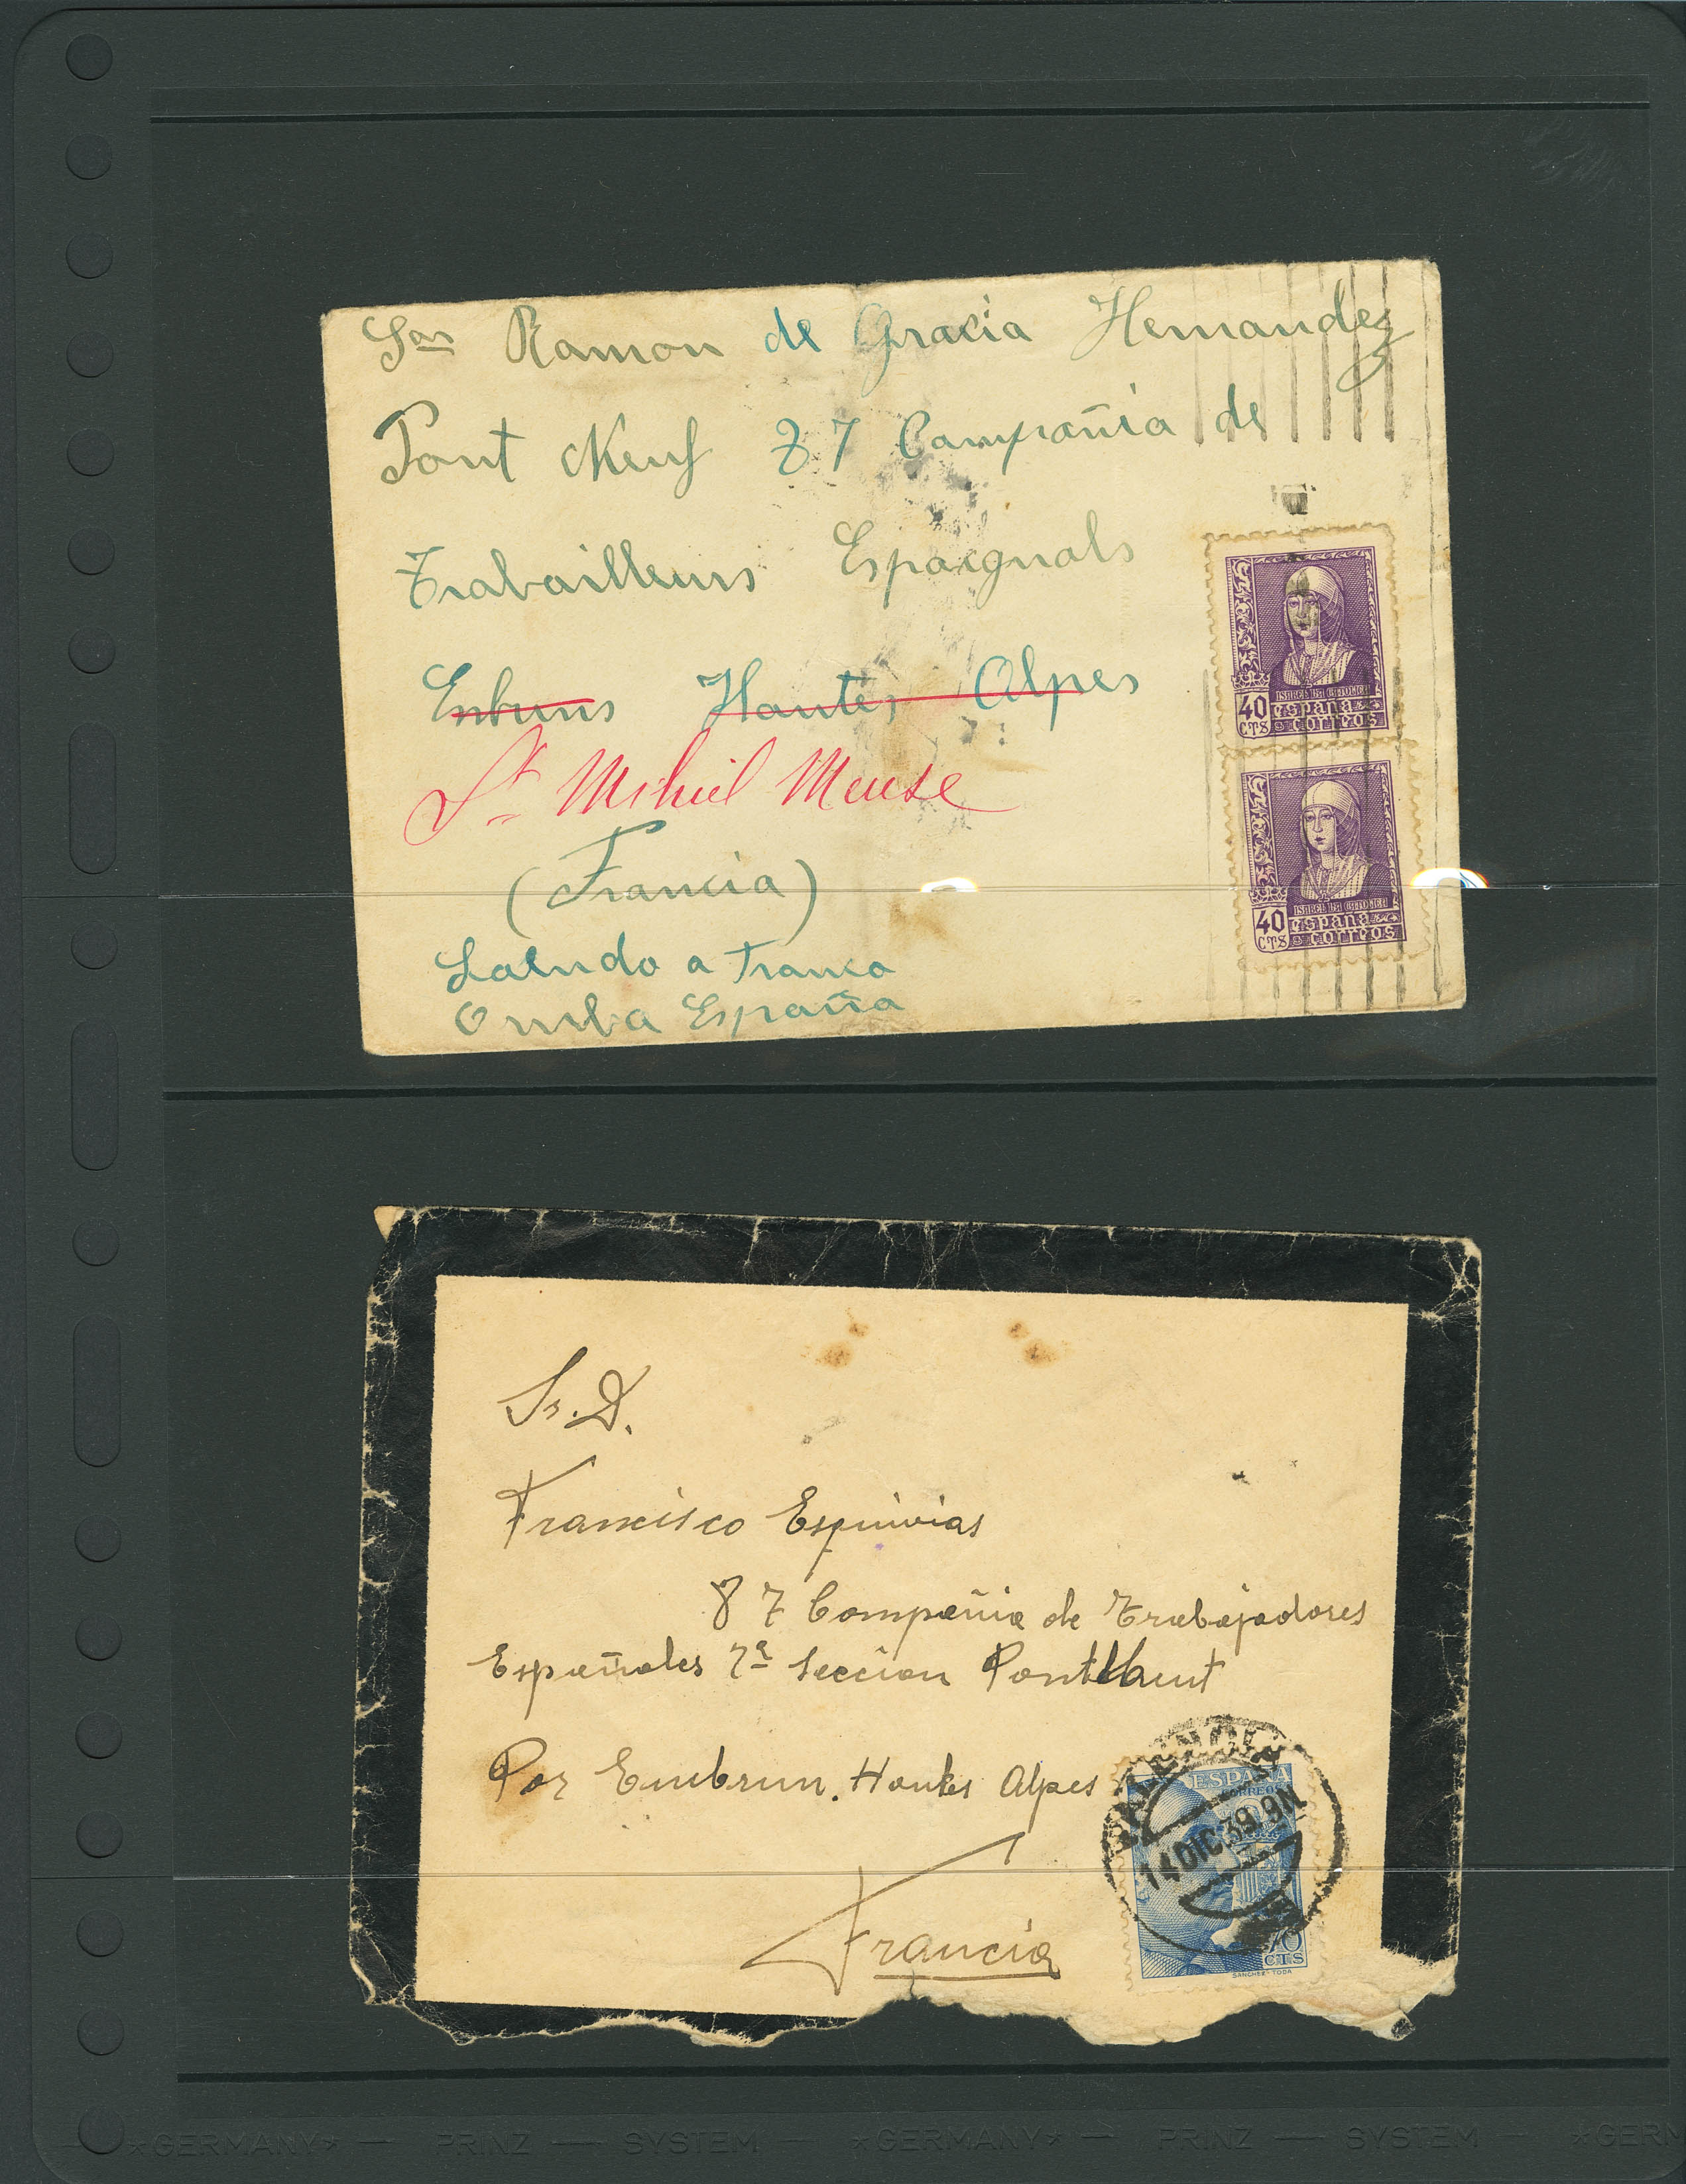 Sor Ramon de Gracia Hernandez
Pont Neuf 87 Campañia de
Travailleurs Espaignals
Enbruns Hautes Alpes
St Mihiel Meuse
(Francia)
Saludo a Franco
Arriba España
40 CTS ISABEL LA CATOLICA
españa
correos
40 CTS ISABEL LA CATOLICA
españa
correos
Sr. D.
Francisco Esquivias
87 Compañia de Trabajadores
Españoles 7ª Seccion
Por Embrun. Hautes Alpes
Francia
ESPAÑA
CORREOS
14 DIC.39 9N
70
CTS
SANCHEZ-TODA
*GERMANY* — PRINZ — SYSTEM — *GERMANY* — PRINZ — SYSTEM — *GERM